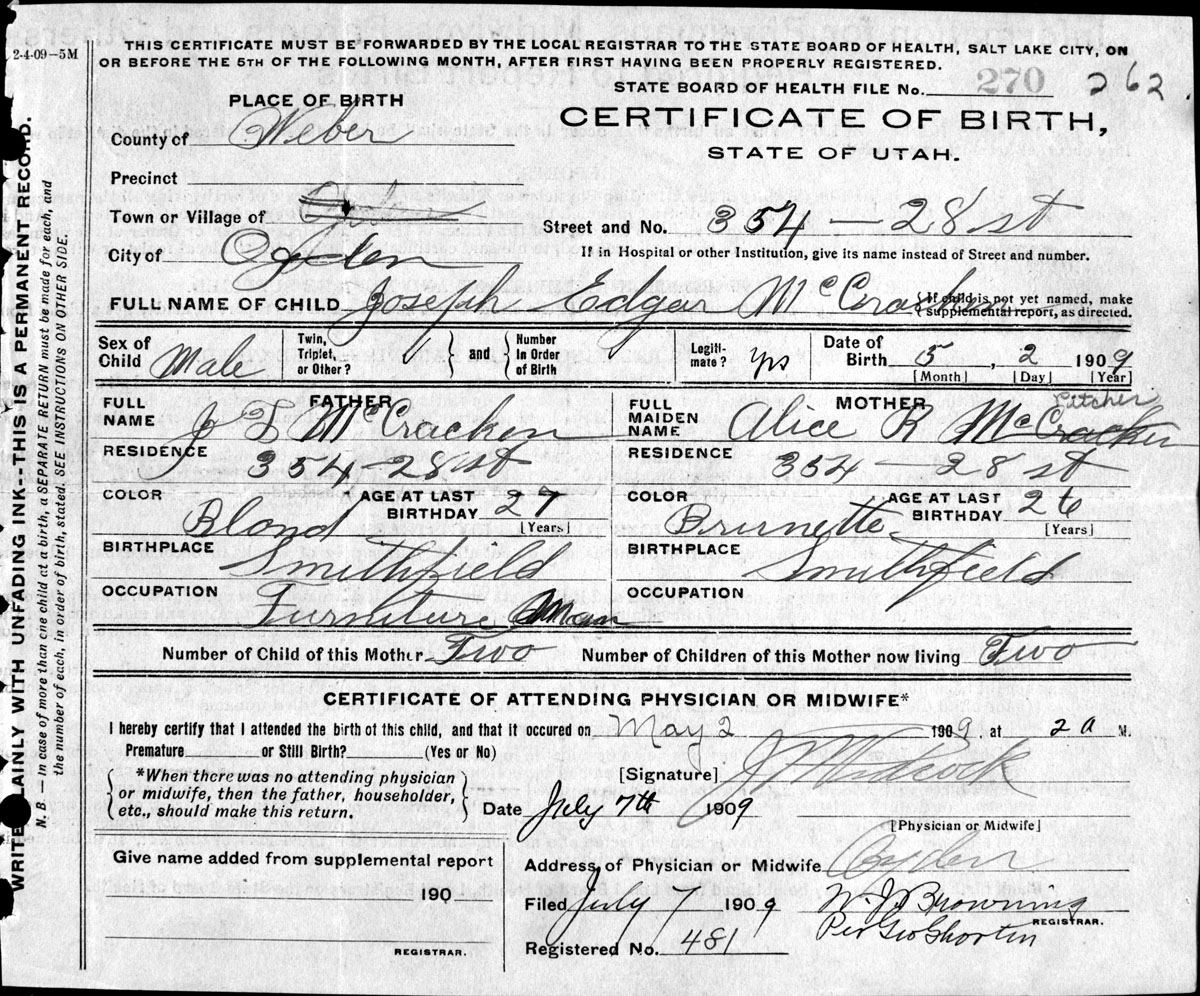 2-4-09-5M
THIS CERTIFICATE MUST BE FORWARDED BY THE LOCAL REGISTRAR TO THE STATE BOARD OF HEALTH, SALT LAKE CITY, ON
OR BEFORE THE 5TH OF THE FOLLOWING MONTH, AFTER FIRST HAVING BEEN PROPERLY REGISTERED.
STATE BOARD OF HEALTH FILE No. 270 262
PLACE OF BIRTH
CERTIFICATE OF BIRTH,
STATE OF UTAH.
County of Weber
Precinct
Town or Village of
Street and No. 354 - 28 st
City of Ogden
If in Hospital or other Institution, give its name instead of Street and number.
FULL NAME OF CHILD Joseph Edgar McCracken
{If child is not yet named, make
supplemental report, as directed.
Sex of Child Male
Twin, Triplet, or Other? 1 } and { Number In Order of Birth 1
Legiti-mate? yes
Date of Birth 5, 2 1909
[Month] [Day] [Year]
FATHER
FULL NAME J E McCracken
RESIDENCE 354-28 st
COLOR Blond
AGE AT LAST BIRTHDAY 27 [Years]
BIRTHPLACE Smithfield
OCCUPATION Furniture Man
MOTHER
FULL MAIDEN NAME Alice R McCracken Pitcher
RESIDENCE 354-28 st
COLOR Brunette
AGE AT LAST BIRTHDAY 26 [Years]
BIRTHPLACE Smithfield
OCCUPATION
Number of Child of this Mother Two Number of Children of this Mother now living Two
CERTIFICATE OF ATTENDING PHYSICIAN OR MIDWIFE*
I hereby certify that I attended the birth of this child, and that it occured on May 2 1909, at 2 a M.
Premature or Still Birth? (Yes or No)
{*When there was no attending physician
or midwife, then the father, householder,
etc., should make this return.}
[Signature]
Date July 7th 1909
[Physician or Midwife]
Give name added from supplemental report
190
REGISTRAR.
Address of Physician or Midwife Ogden
Filed July 7 1909 W. J. Browning
REGISTRAR.
Per Geo Shorten
Registered No. 481
WRITE PLAINLY WITH UNFADING INK--THIS IS A PERMANENT RECORD.
N. B.-In case of more than one child at a birth, a SEPARATE RETURN must be made for each, and
the number of each, in order of birth, stated. SEE INSTRUCTIONS ON OTHER SIDE.